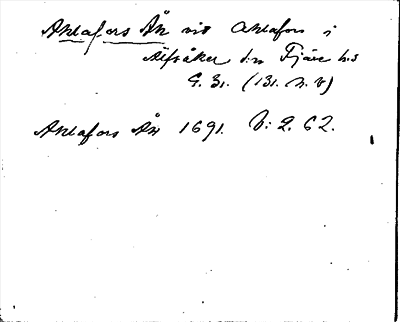 Ahlafors Ån vid Ahlafors i
Älfsåker s:n Fjäre h:d
G. 31. (131. n. v)
Ahlafors Ån 1691. V: 2. 62.